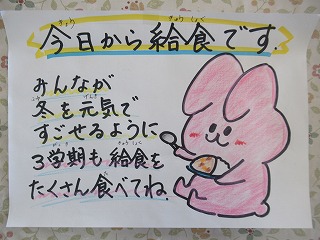 今日から給食です.
みんなが
冬を元気で
すごせるように
3学期も給食を
たくさん食べてね.